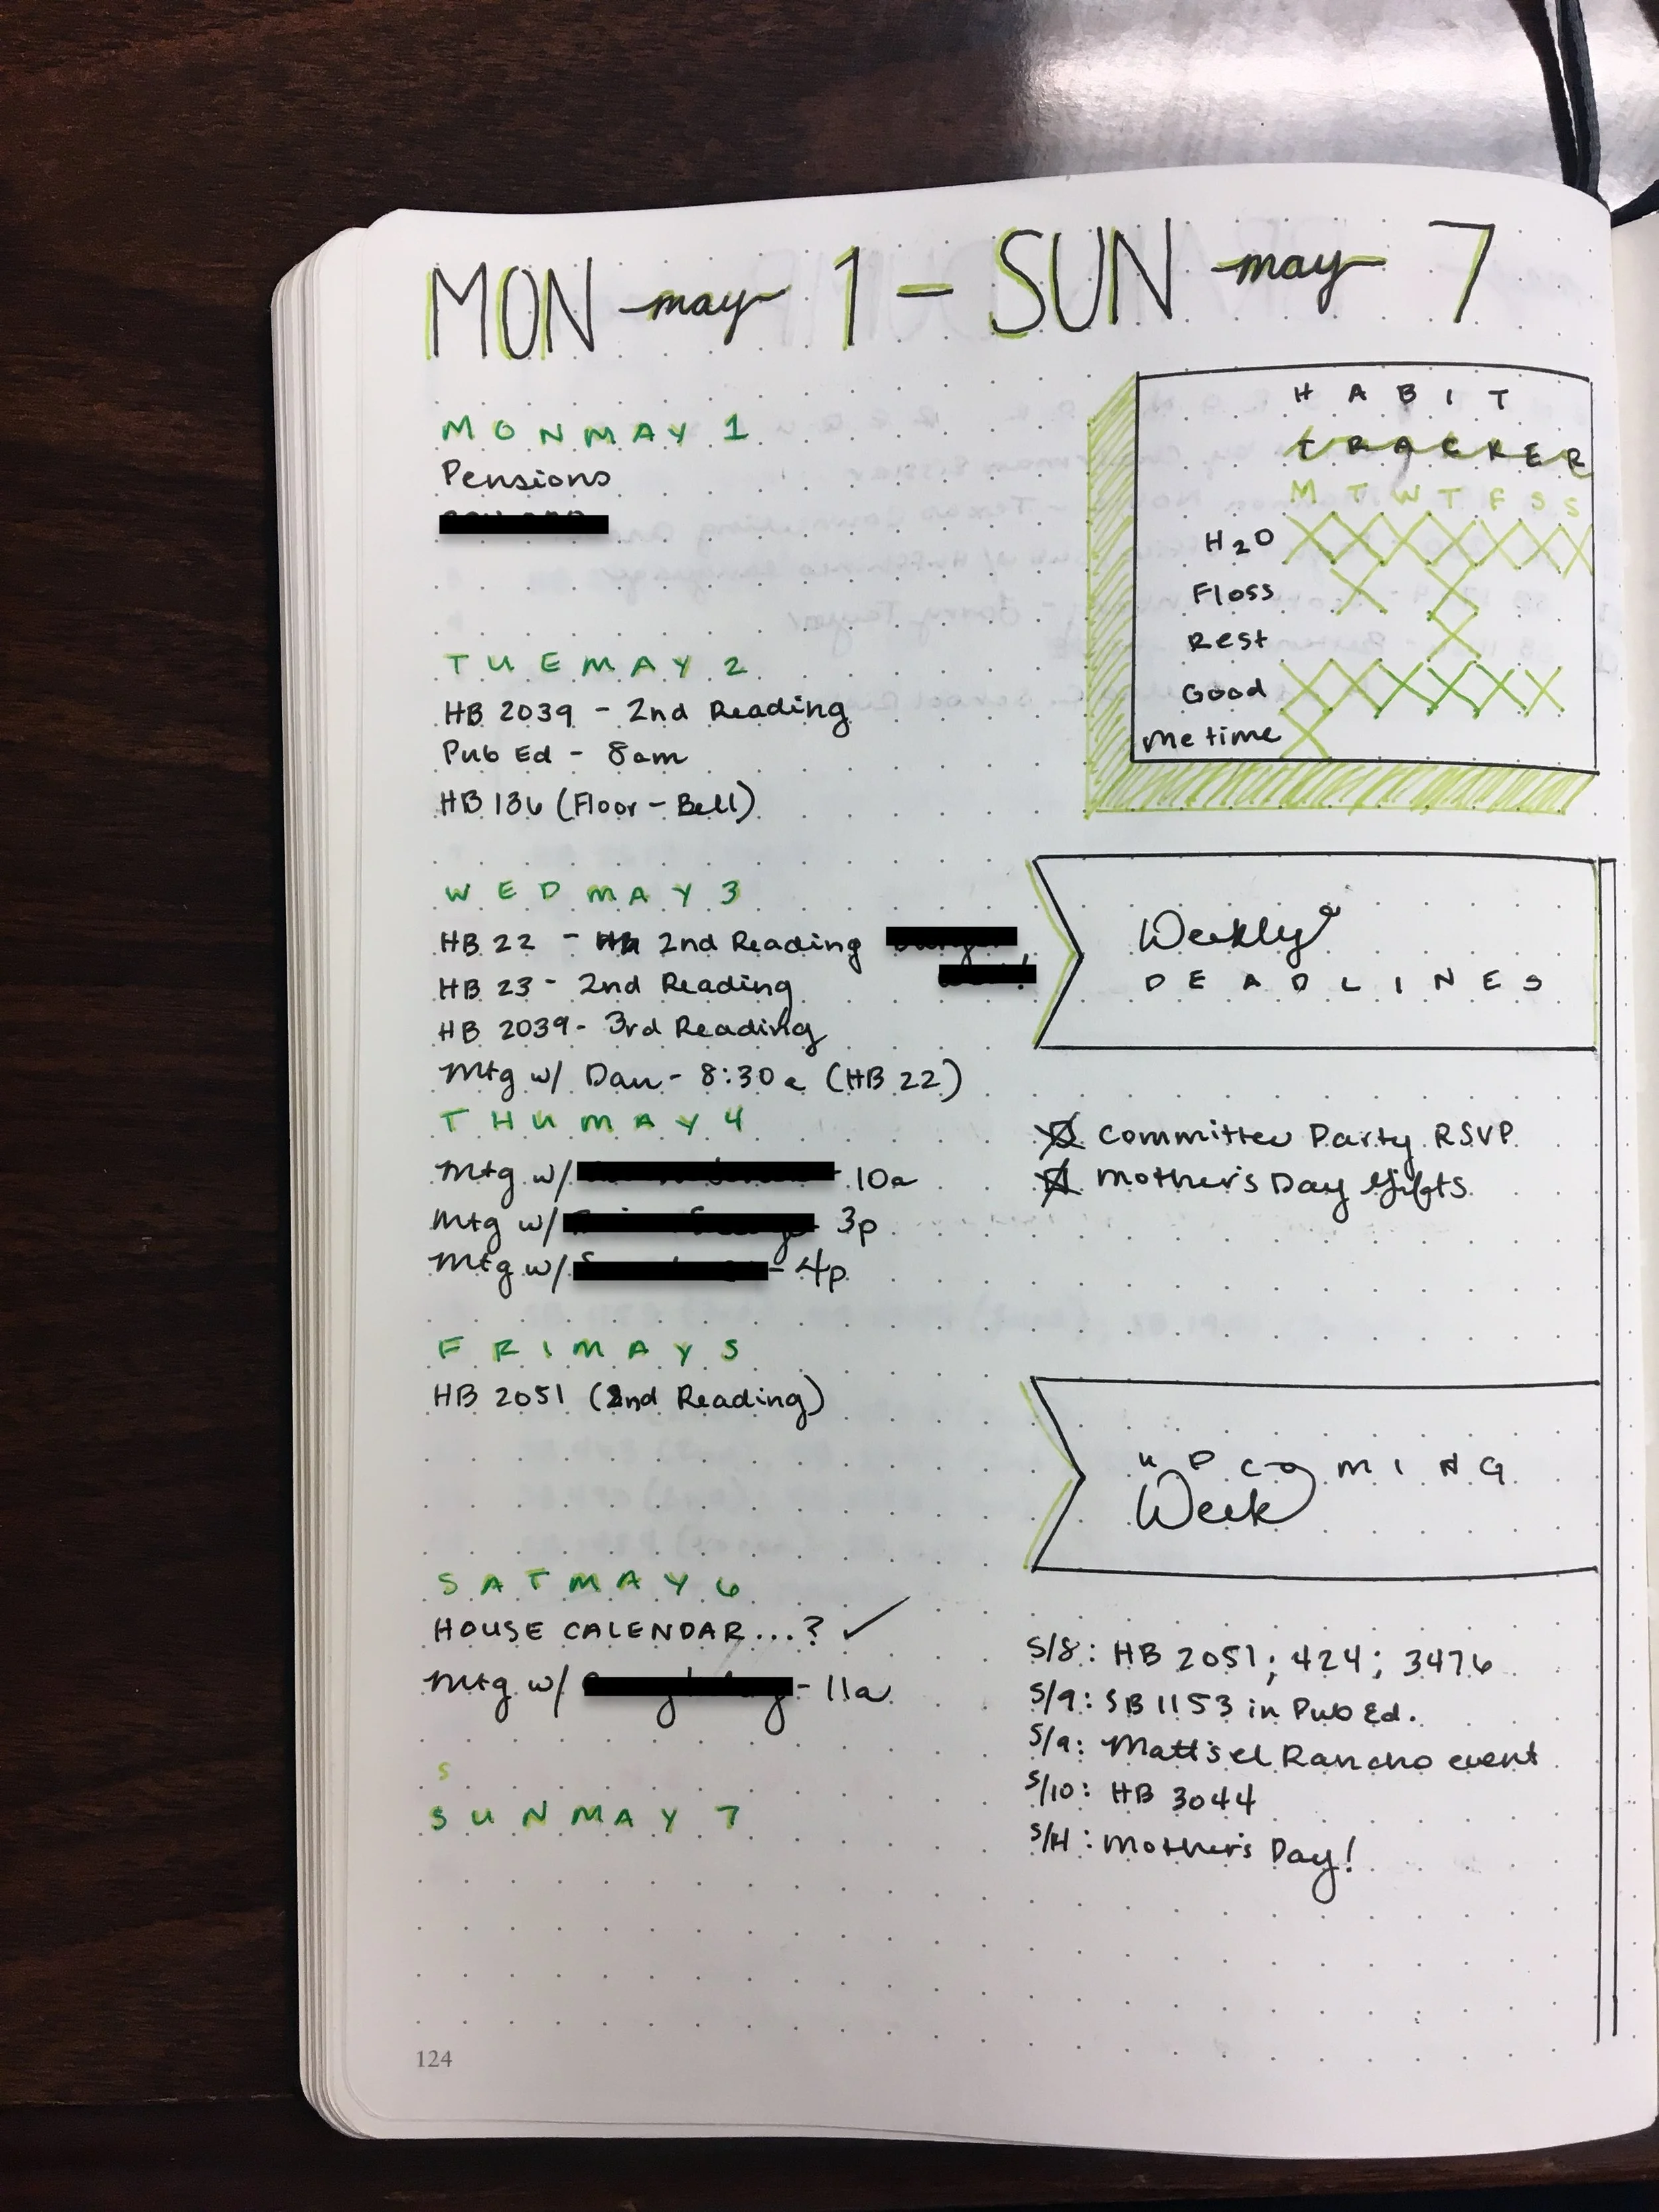 MON may 1 - SUN may 7
MON MAY 1
Pensions
TUE MAY 2
HB 2039 - 2nd Reading
Pub Ed - 8am
HB 136 (Floor - Bell)
WED MAY 3
HB 22 - 2nd Reading
HB 23 - 2nd Reading
HB 2039 - 3rd Reading
Mtg w/ Dan - 8:30a (HB 22)
THU MAY 4
Mtg w/ 10a
Mtg w/ 3p
Mtg w/ - 4p
FRI MAY 5
HB 2051 (2nd Reading)
SAT MAY 6
HOUSE CALENDAR...? ✓
Mtg w/ - 11a
S
SUN MAY 7
HABIT
TRACKER
M T W T F S S
H2O
Floss
Rest
Good
me time
Weekly
DEADLINES
Committee Party RSVP
Mother's Day Gifts
UPCOMING
Week
5/8: HB 2051; 424; 3476
5/9: SB 1153 in Pub Ed.
5/9: Matt's el Rancho event
5/10: HB 3044
Mother's Day!
124